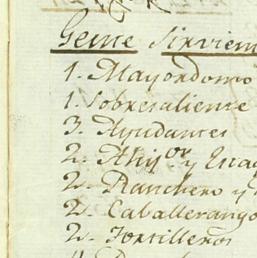 Gente Sirvien
1. Mayordomo
1. Sobresaliente
3. Ayudantes
2. y
2. Ranchero y
2. Caballerango
2. Tortilleros